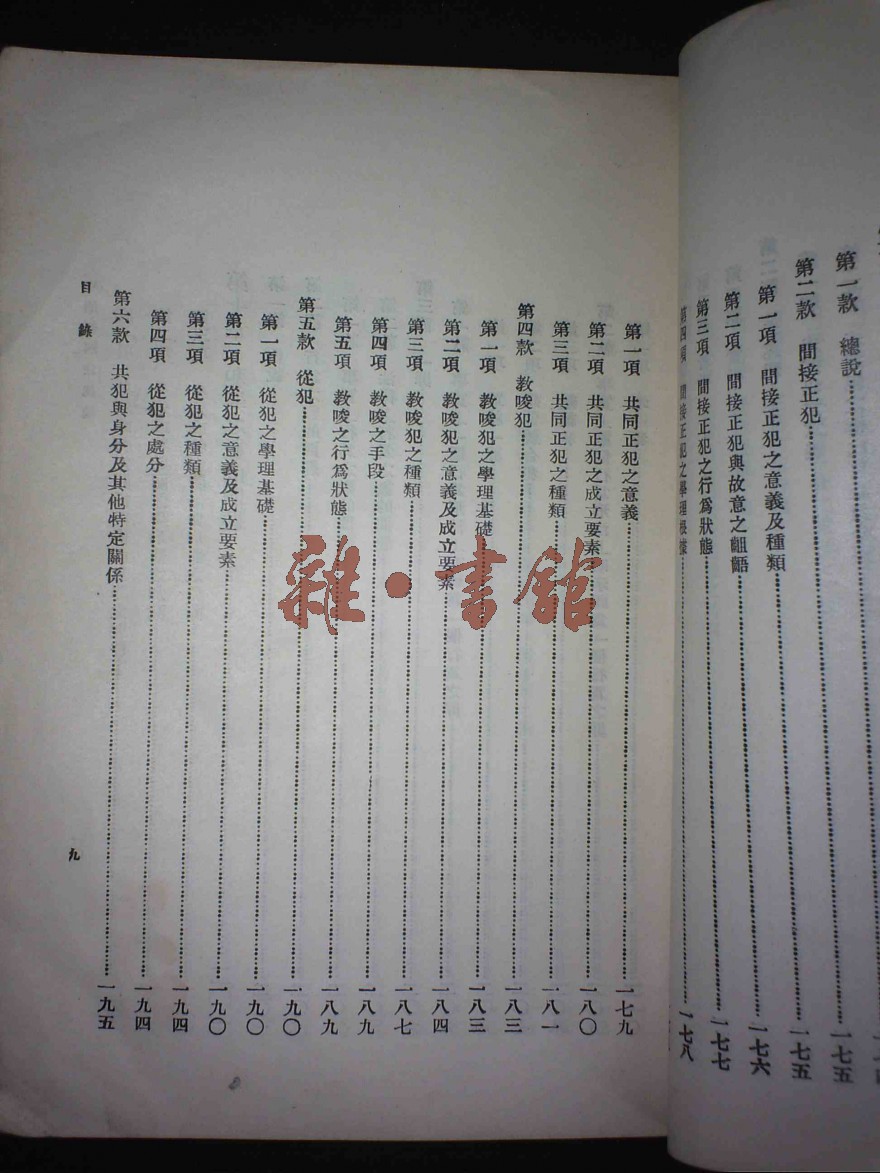 第一款　總說……一七五
第二款　間接正犯……一七五
第一項　間接正犯之意義及種類……一七六
第二項　間接正犯與故意之齟齬……一七七
第三項　間接正犯之行爲狀態
第四項　間接正犯之學理根據……一七八
第一項　共同正犯之意義……一七九
第二項　共同正犯之成立要素……一八〇
第三項　共同正犯之種類……一八一
第四款　教唆犯……一八三
第一項　教唆犯之學理基礎……一八三
第二項　教唆犯之意義及成立要素……一八四
第三項　教唆犯之種類……一八七
第四項　教唆之手段……一八九
第五項　教唆之行爲狀態……一八九
第五款　從犯……一九〇
第一項　從犯之學理基礎……一九〇
第二項　從犯之意義及成立要素……一九〇
第三項　從犯之種類……一九四
第四項　從犯之處分……一九四
第六款　共犯與身分及其他特定關係……一九五
目錄
九
雜·書館